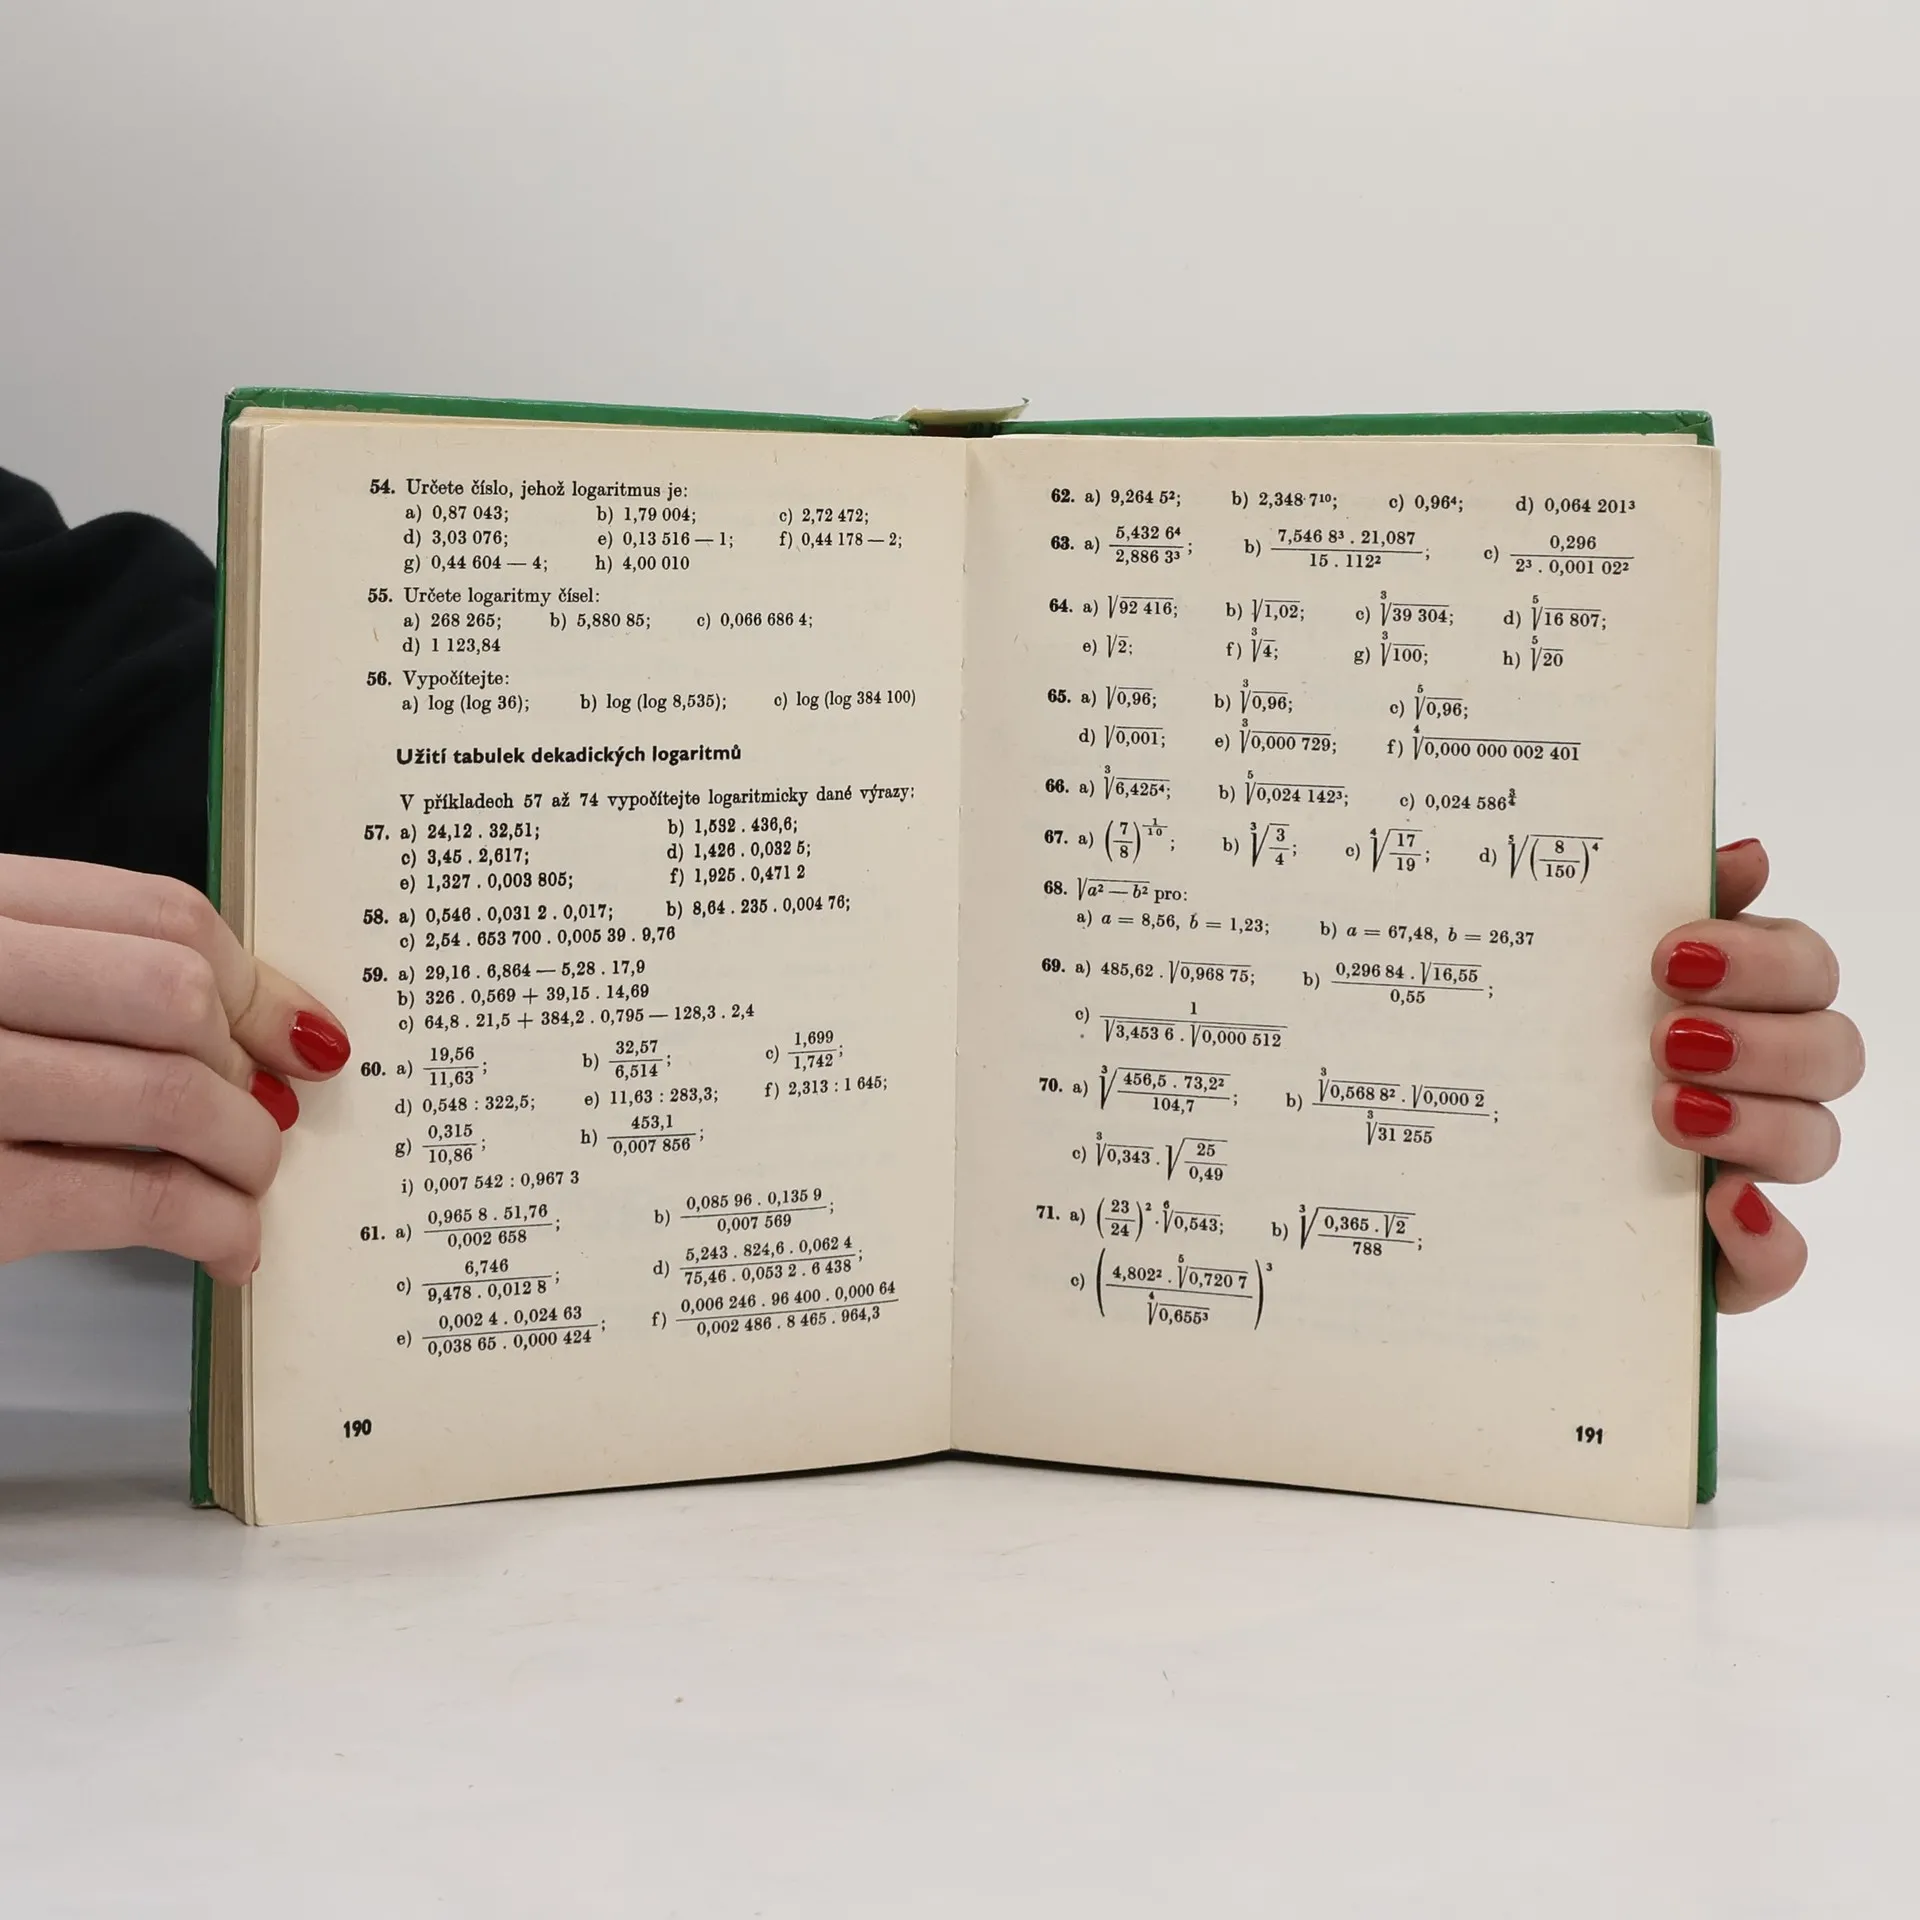 54. Určete číslo, jehož logaritmus je:
a) 0,87 043; b) 1,79 004; c) 2,72 472;
d) 3,03 076; e) 0,13 516 — 1; f) 0,44 178 — 2;
g) 0,44 604 — 4; h) 4,00 010
55. Určete logaritmy čísel:
a) 268 265; b) 5,880 85; c) 0,066 686 4;
d) 1 123,84
56. Vypočítejte:
a) log (log 36); b) log (log 8,535); c) log (log 384 100)
Užití tabulek dekadických logaritmů
V příkladech 57 až 74 vypočítejte logaritmicky dané výrazy:
57. a) 24,12 . 32,51; b) 1,532 . 436,6;
c) 3,45 . 2,617; d) 1,426 . 0,032 5;
e) 1,327 . 0,003 805; f) 1,925 . 0,471 2
58. a) 0,546 . 0,031 2 . 0,017; b) 8,64 . 235 . 0,004 76;
c) 2,54 . 653 700 . 0,005 39 . 9,76
59. a) 29,16 . 6,864 — 5,28 . 17,9
b) 326 . 0,569 + 39,15 . 14,69
c) 64,8 . 21,5 + 384,2 . 0,795 — 128,3 . 2,4
60. a) 19,56/11,63; b) 32,57/6,514; c) 1,699/1,742;
d) 0,548 : 322,5; e) 11,63 : 283,3; f) 2,313 : 1 645;
g) 0,315/10,86; h) 453,1/0,007 856;
i) 0,007 542 : 0,967 3
61. a) (0,965 8 . 51,76)/(0,002 658); b) (0,085 96 . 0,135 9)/(0,007 569);
c) (6,746)/(9,478 . 0,012 8); d) (5,243 . 824,6 . 0,062 4)/(75,46 . 0,053 2 . 6 438);
e) (0,002 4 . 0,024 63)/(0,038 65 . 0,000 424); f) (0,006 246 . 96 400 . 0,000 64)/(0,002 486 . 8 465 . 964,3)
190
62. a) 9,264 5²; b) 2,348 7¹⁰; c) 0,96⁴; d) 0,064 201³
63. a) (5,432 6⁴)/(2,886 3³); b) (7,546 8³ . 21,087)/(15 . 112²); c) (0,296)/(2³ . 0,001 02²)
64. a) √92 416; b) √1,02; c) ³√39 304; d) ⁵√16 807;
e) √2; f) ³√4; g) ³√100; h) ⁵√20
65. a) √0,96; b) ³√0,96; c) ⁵√0,96;
d) √0,001; e) ³√0,000 729; f) ⁴√0,000 000 002 401
66. a) ³√6,425⁴; b) ⁵√0,024 142³; c) 0,024 586^(3/4)
67. a) (7/8)^(1/10); b) ³√(3/4); c) ⁴√(17/19); d) ⁵√((8/150)⁴)
68. √(a² — b²) pro:
a) a = 8,56, b = 1,23; b) a = 67,48, b = 26,37
69. a) 485,62 . √0,968 75; b) (0,296 84 . √16,55)/(0,55);
c) 1/(√3,453 6 . √0,000 512)
70. a) ³√((456,5 . 73,2²)/(104,7)); b) (³√0,568 8² . √0,000 2)/(³√31 255);
c) ³√0,343 . √(25/0,49)
71. a) (23/24)² . ⁶√0,543; b) ³√((0,365 . √2)/788);
c) ((4,802² . ⁵√0,720 7)/(⁴√0,655³))³
191